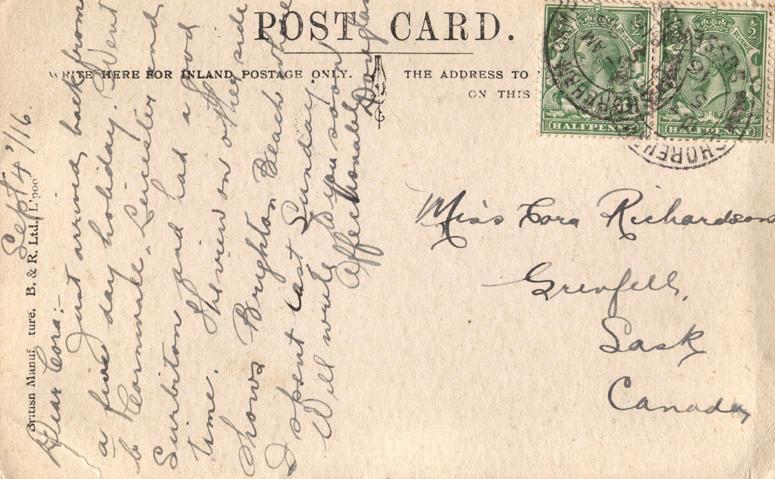 POST CARD.
WRITE HERE FOR INLAND POSTAGE ONLY.
THE ADDRESS TO
ON THIS
HALFPENNY
HALFPENNY
SHOREHAM
SUSSEX
British Manufacture, B. & R. Ltd., L'pool
Sept 4'/16.
Dear Cora:-
Just arrived back from
a five day holiday. Went
to Leicester and
Surbiton and had a good
time. The view on other side
shows Brighton Beach where
I spent last Sunday.
Will write to you soon
Affectionately
Douglas
Miss Cora Richardson
Grenfell,
Sask
Canada